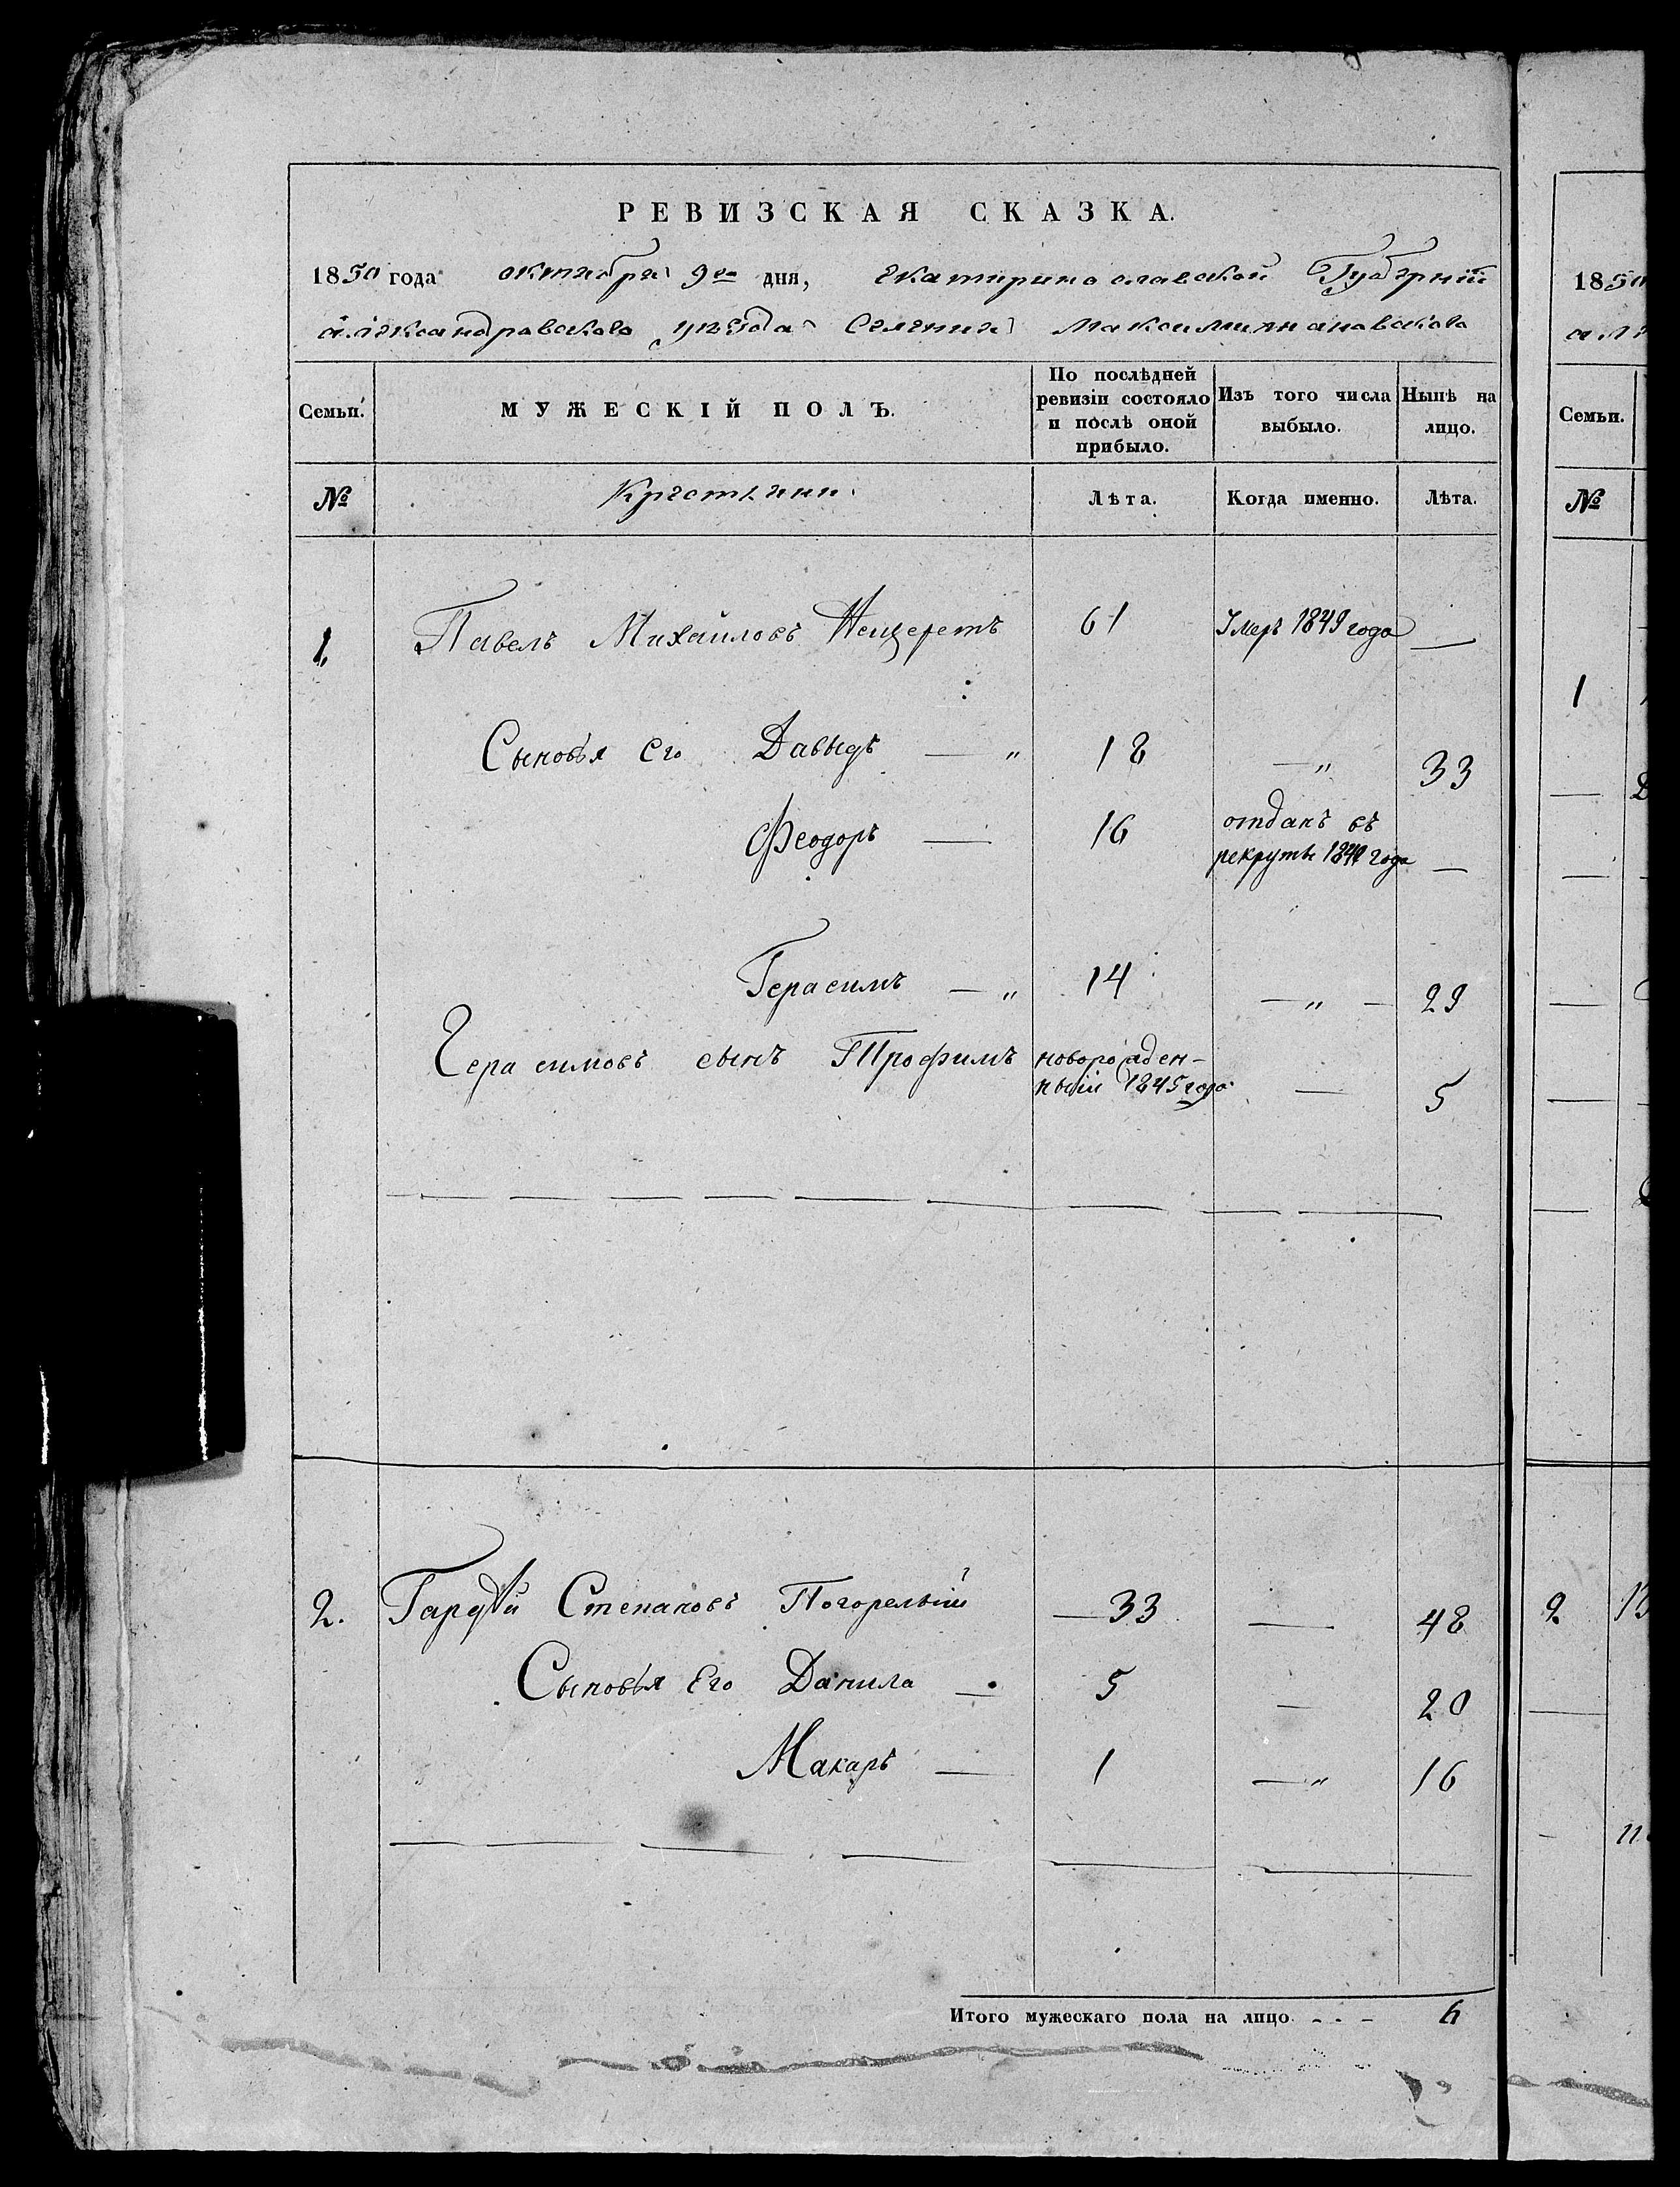 РЕВИЗСКАЯ СКАЗКА.
1850 года октября 9го дня, Екатеринославской Губерніи
Александровскаго уѣзда Селенія Максимилиановскаго
Семьи. МУЖЕСКІЙ ПОЛЪ. По послѣдней ревизіи состояло и послѣ оной прибыло. Изъ того числа выбыло. Нынѣ на лицо.
№ Крестьяни. Лѣта. Когда именно. Лѣта.
1, Павелъ Михайловъ Нещеретъ 61 Умеръ 1849 года —
Сыновья Его Давыдъ — „ 18 — „ 33
Феодоръ — 16 отданъ въ рекруты года —
Герасимъ — „ 14 — „ — 29
Герасимовъ сынъ Трофимъ новорожден-ный 1845 года — 5
2. Степановъ Погорелый — 33 — 48
Сыновья Его Данила — 5 — 20
Макаръ — 1 — „ 16
Итого мужескаго пола на лицо - - - 6
1850
ал
Семьи.
№
1
2